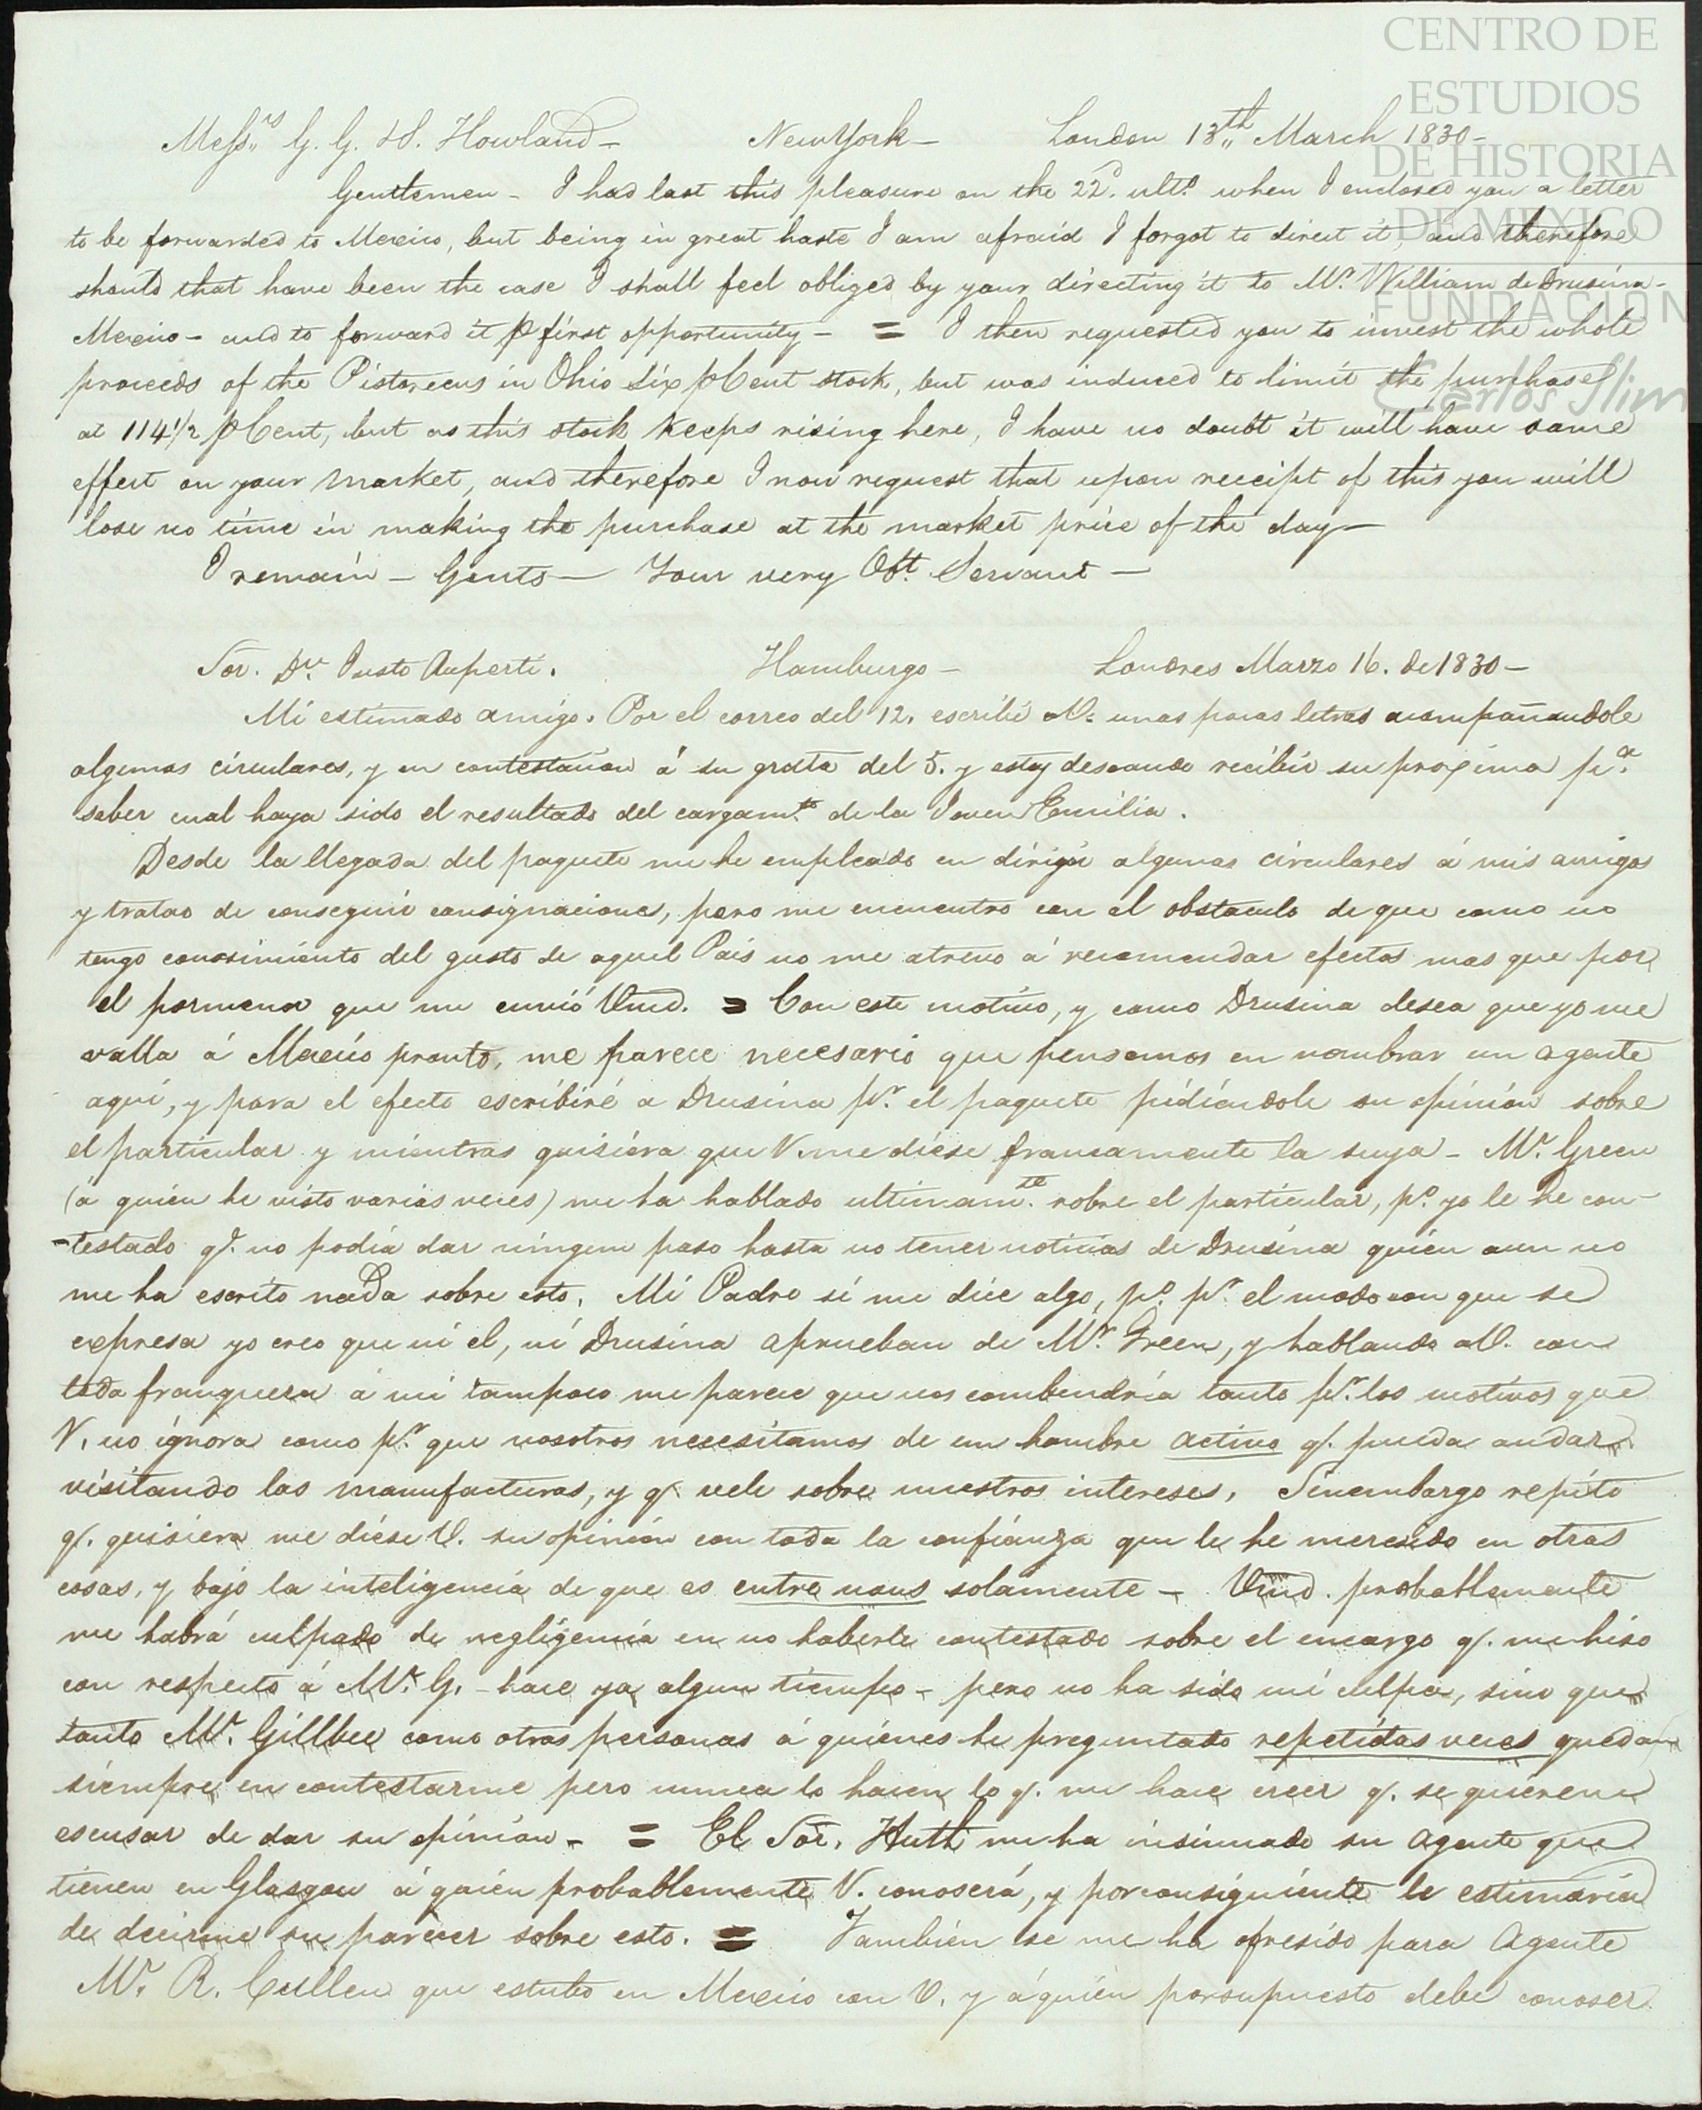 CENTRO DE
ESTUDIOS
DE HISTORIA
DE MEXICO
FUNDACIÓN
Carlos Slim
Messrs. G. G. & S. Howland – New York – London 13th March 1830 –
Gentlemen – I had last this pleasure on the 22d. ulto. when I enclosed you a letter
to be forwarded to Mexico, but being in great haste I am afraid I forgot to direct it, and therefore
should that have been the case I shall feel obliged by your directing it to Mr. William de Drusina –
Mexico – and to forward it p first opportunity – = I then requested you to invest the whole
proceeds of the Pistareens in Ohio Six pCent stock, but was induced to limit the purchase
at 114 1/2 pCent, but as this stock keeps rising here, I have no doubt it will have same
effect on your market, and therefore I now request that upon receipt of this you will
lose no time in making the purchase at the market price of the day –
I remain – Gents – Your very Obt. Servant –
Sor. Dn. Justo Ruperti. Hamburgo – Londres Marzo 16. de 1830 –
Mi estimado amigo. Por el correo del 12. escribi a V. unas pocas letras acompañandole
algunas circulares, y en contestacion á su grata del 5. y estoy deseando recibir su proxima pa.
saber cual haya sido el resultado del cargamto. de la Joven Emilia.
Desde la llegada del paquete me he empleado en dirigir algunas circulares á mis amigos
y tratar de conseguir consignaciones, pero me encuentro con el obstaculo de que como no
tengo conosimiento del gusto de aquel Pais no me atrevo á recomendar efectos mas que por
el pormenor que me envió Vmd. = Con este motivo, y como Drusina desea que yo me
valla á Mexico pronto, me parece necesario que pensemos en nombrar un agente
aqui, y para el efecto escribiré a Drusina pr. el paquete pidiendole su opinion sobre
el particular y mientras quisiera que V. me diese francamente la suya – Mr. Green
(á quien he visto varias veces) me ha hablado ultimamte. sobre el particular, po. yo le he con-
-testado q. no podia dar ningun paso hasta no tener noticias de Drusina quien aun no
me ha escrito nada sobre esto. Mi Padre si me dice algo, po. pr. el modo con que se
expresa yo creo que ni el, ni Drusina aprueban de Mr. Green, y hablando a V. con
toda franqueza á mi tampoco me parece que nos combendria tanto pr. los motivos que
V. no ignora como pr. que nosotros necesitamos de un hombre activo q. pueda andar
visitando las manufacturas, y q. vele sobre nuestros intereses. Sinembargo repito
q. quisiera me diese V. su opinion con toda la confianza que le he meresido en otras
cosas, y bajo la inteligencia de que es entre nous solamente – Vmd. probablemente
me habrá culpado de negligencia en no haberle contestado sobre el encargo q. me hiso
con respecto á Mr. G. – hace ya algun tiempo – pero no ha sido mi culpa, sino que
tanto Mr. Gillbee como otras personas á quienes he preguntado repetidas veces quedan
siempre en contestarme pero nunca lo hacen lo q. me hace creer q. se quieren
escusar de dar su opinion – = El Sor. Huth me ha insinuado su agente que
tienen en Glasgow á quien probablemente V. conoserá, y por consiguiente le estimaria
de decirme su parecer sobre esto. = Tambien se me ha ofresido para Agente
Mr. R. Cullen que estubo en Mexico con V. y á quien porsupuesto debe conoser.